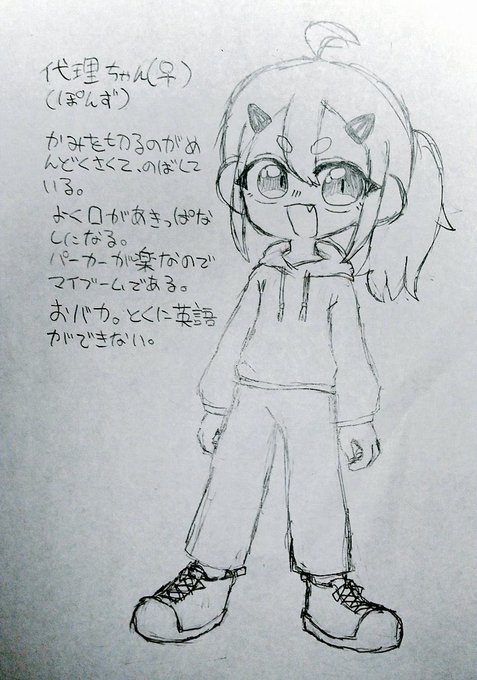 代理ちゃん(早)
(ぽんず)
かみを切るのがめ
んどくさくて、のばして
いる。
よく口があきっぱな
しになる。
パーカーが楽なので
マイブームである。
おバカ。とくに英語
ができない。